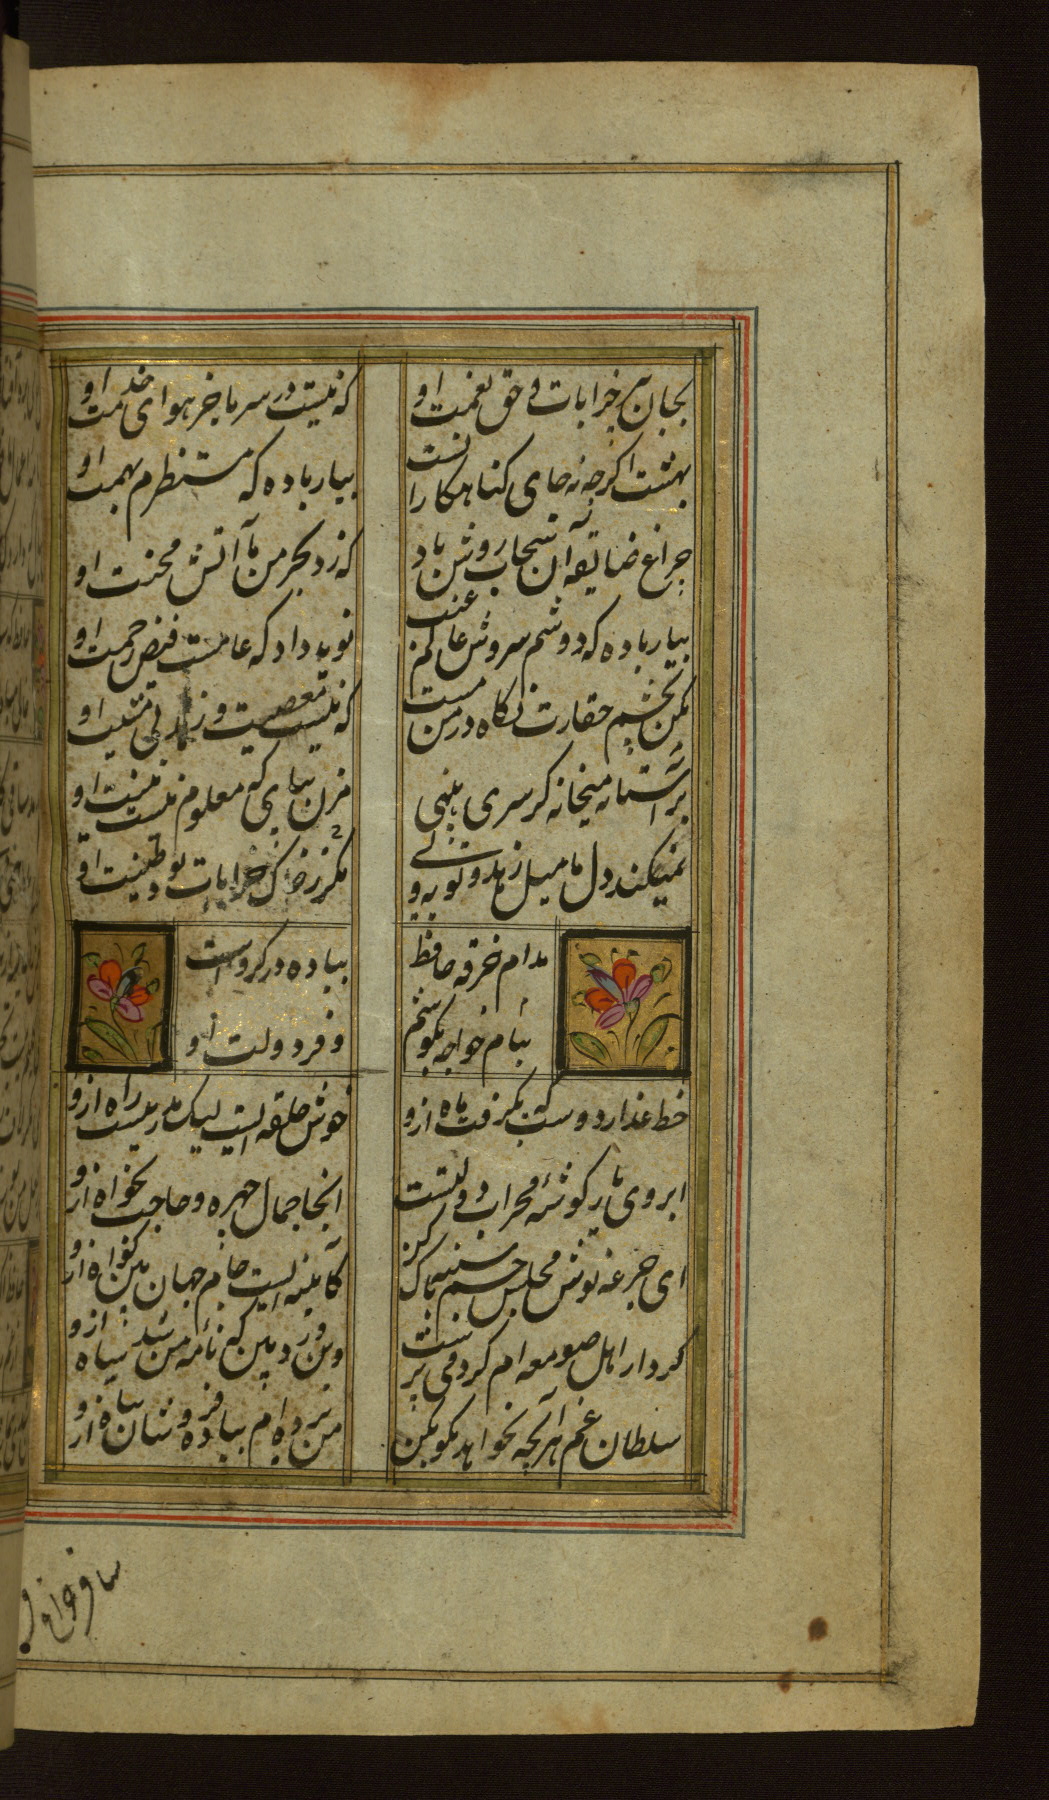 بجان پیر خرابات و حق نعمت او
که نیست در سر ما خبر هوای خدمت او
بهشت اگر چه نه جای کناهکارانست
بیار باده که مستظهرم بهمت او
چراغ صاعقه آن سحاب روشن باد
که زد بخرمن ما آتش محنت او
بیار باده که دوشم سروش عالم غیب
نوید داد که عامست فیض رحمت او
مکن بچشم حقارت نکاه در من مست
که نیست معصیت و زهد بی مشیت او
بر آستانه میخانه کر سری بینی
مزن بپای که معلوم نیست نیت او
نمیکند دل ما میل زهد و توبه ولی
مکر ز خاک خرابات بود طینت او
مدام خرقه حافظ
بباده در کروست
بنام خواجه بکوشیم
و فر دولت او
خط عذار دوست که بکرفت ماه ازو
خوش حلقه ایست لیک بدر نیست راه ازو
ابروی یار کوشه محراب دولتست
انجا جمال چهره و حاجت بخواه ازو
ای جرعه نوش مجلس جم سینه پاک کن
کآینه ایست جام جهان بین که آه ازو
کردار اهل صومعه ام کرد می پرست
وین دود بین که نامه من شد سیاه ازو
سلطان غم هر آنچه بخواهد بکو بکن
من برده ام بباده فروشان پناه ازو